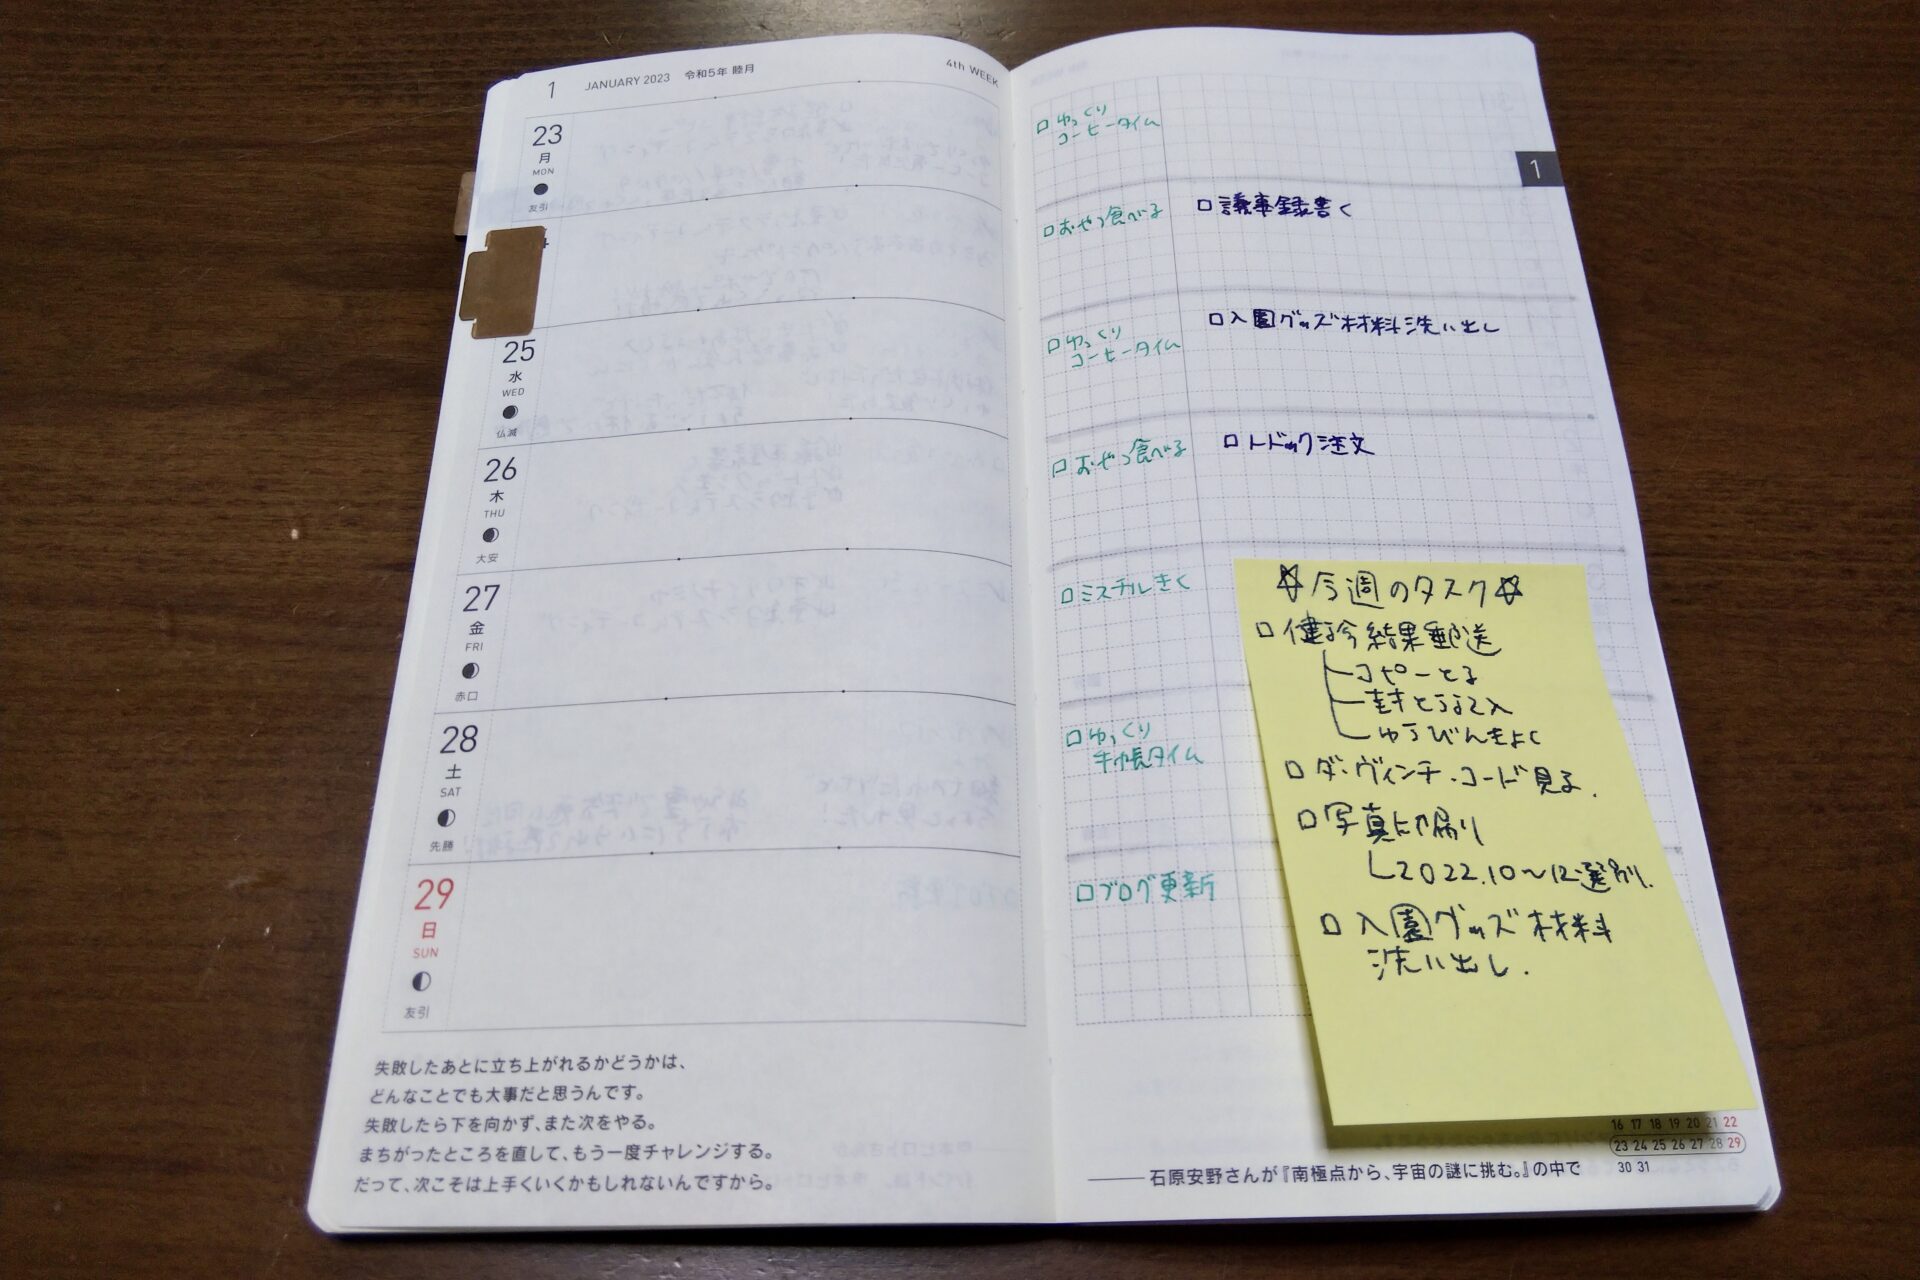 1 JANUARY 2023 令和5年 睦月
4th WEEK
23
月
MON
友引
25
水
WED
仏滅
26
木
THU
大安
27
金
FRI
赤口
28
土
SAT
先勝
29
日
SUN
友引
失敗したあとに立ち上がれるかどうかは、
どんなことでも大事だと思うんです。
失敗したら下を向かず、また次をやる。
まちがったところを直して、もう一度チャレンジする。
だって、次こそは上手くいくかもしれないんですから。
1
ゆっくり
コーヒータイム
おやつ食べる
議事録書く
ゆっくり
コーヒータイム
入園グッズ材料洗い出し
おやつ食べる
トドック注文
ミスチルきく
ゆっくり
手帳タイム
ブログ更新
☆今週のタスク☆
健診結果郵送
コピーとる
封とうに入
ゆうびんきょく
ダ・ヴィンチ・コード見る.
写真印刷
2022.10〜12選別.
入園グッズ材料
洗い出し.
16 17 18 19 20 21 22
23 24 25 26 27 28 29
30 31
——石原安野さんが『南極点から、宇宙の謎に挑む。』の中で